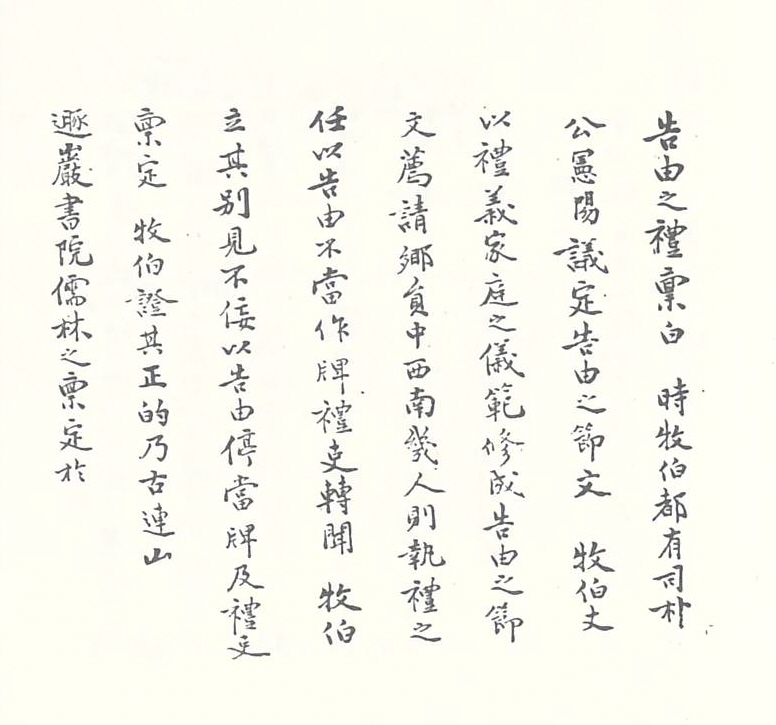 告由之禮稟白 時牧伯都有司朴
公憲陽議定告由之節文 牧伯丈
以禮義家庭之儀範修成告由之節
文薦請鄉員中西南幾人則執禮之
任以告由不當作牌禮吏轉聞 牧伯
立其別見不佞以告由停當牌及禮吏
稟定 牧伯證其正的乃古連山
遯巖書院儒林之稟定於